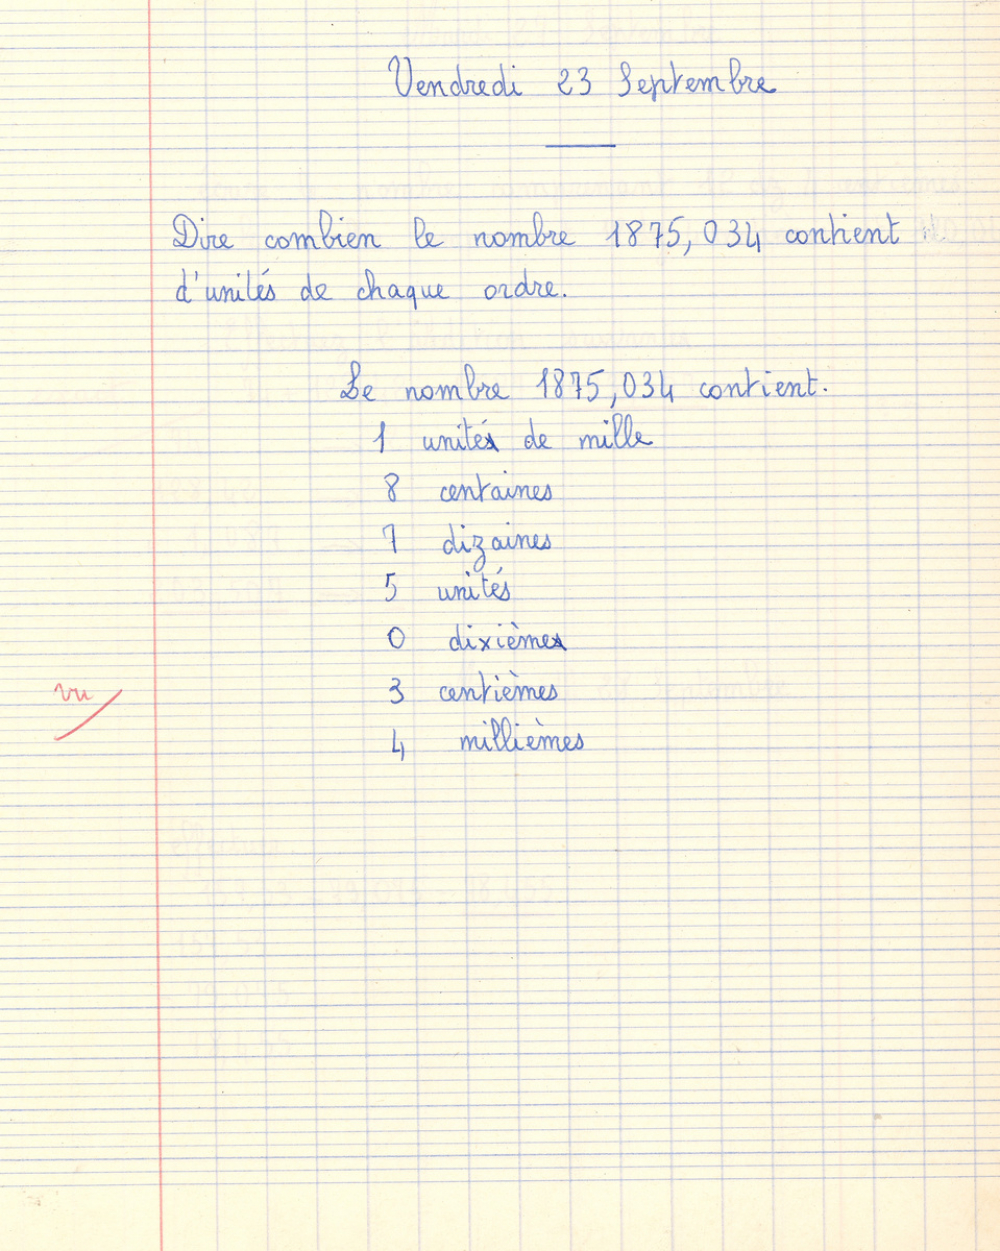 Vendredi 23 Septembre
Dire combien le nombre 1875,034 contient
d'unités de chaque ordre.
Le nombre 1875,034 contient.
1 unité de mille
8 centaines
7 dizaines
5 unités
0 dixième
3 centièmes
vu
4 millièmes